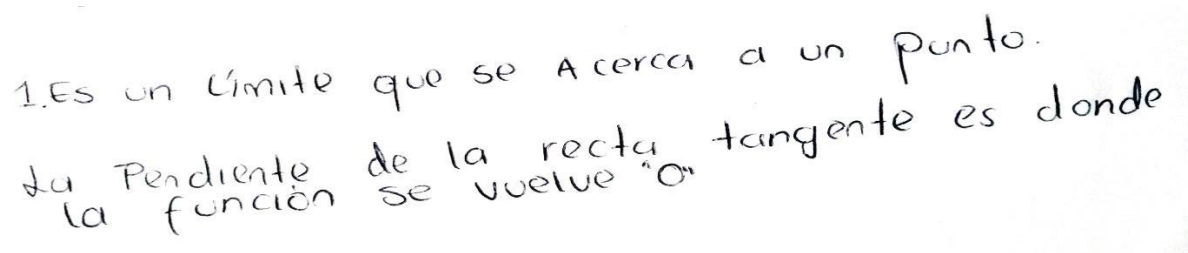 1.Es un Límite que se Acerca a un punto.
La Pendiente de la recta tangente es donde
la función se vuelve "0"